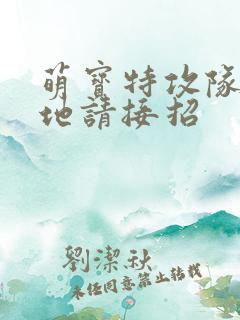 萌寶特攻隊
地請接招
劉潔秋
未任同意第止转载